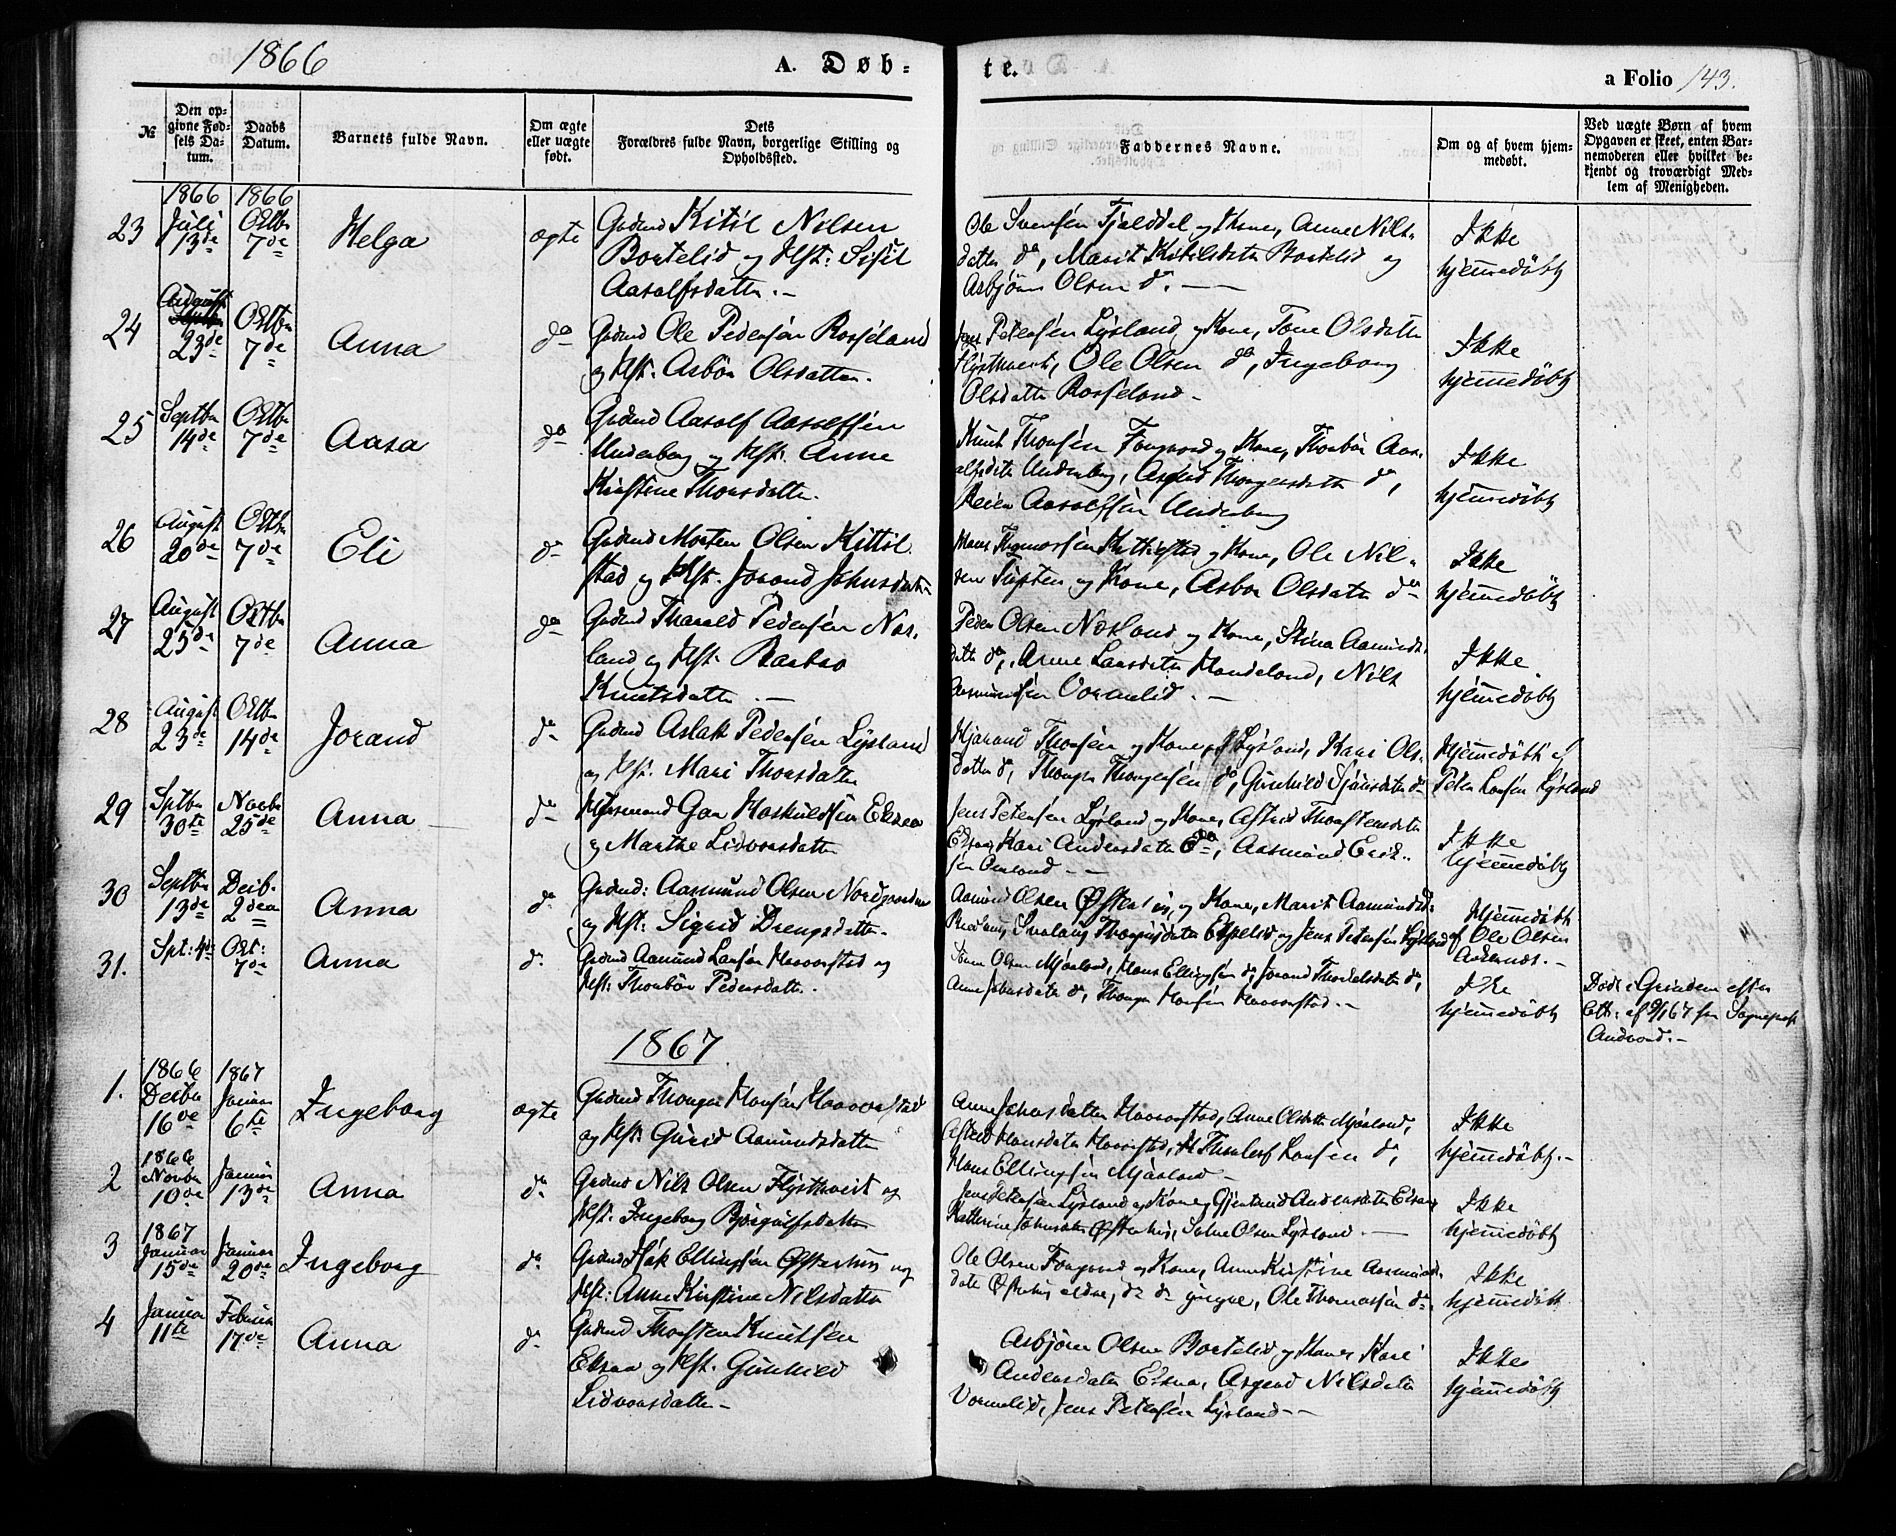 1866
A. Døb-
te.
a Folio 143.
№
Den op-
givne Fød-
sels Da-
tum.
Daabs
Datum.
Barnets fulde Navn.
Om ægte
eller uægte
født.
Dets
Forældres fulde Navn, borgerlige Stilling og
Opholdssted.
Faddernes Navne.
Om og af hvem hjem-
medøbt.
Ved uægte Børn af hvem
Opgaven er skeet, enten Bar-
nemoderen eller hvilket be-
kjendt og troværdigt Med-
lem af Menigheden.
1866 1866
23 Juli 13de Octbr 7de Helga ægte Gadmd Kitil Nilsen
Bortelid og Hst: Sisil
Aasolfsdatter.-
Ole Svensen Fjelddal og Kone, Anne Nils-
datter do, Marit Kitilsdatter Bortelid og
Asbjørn Olsen do.-
Ikke
hjemmedøbt
24 August 23de Octbr 7de Anna do Gadmd Ole Pedersen Rosseland
og Hst. Asbør Olsdatter.
Jens Petersen Lysland og Kone, Tone Olsdatter
Flysthveit, Ole Olsen do, Ingeborg
Olsdatter Rosseland-
Ikke
hjemmedøbt
25 Septbr 14de Octbr 7de Aasa do Gadmd Aasolf Aasolfsen
Underberg og Hst. Anne
Kirstine Thorsdatter.
Knut Thorsen og Kone, Thorbør Aas-
olfsdatter Underberg, Thorgersdatter do,
Aasolfsen Underberg
Ikke
hjemmedøbt
26 August 20de Octbr 7de Eli do Gadmd Morten Olsen Kittil-
stad og Hst. Jorand Johnsdatter
Hans Thomassen Kittilstad og Kone, Ole Nil-
sen og Kone, Asbør Olsdatter do
Ikke
hjemmedøbt
27 August 25de Octbr 7de Anna do Gadmd Tharald Pedersen Nos-
land og Hst. Barbro
Knutsdatter -
Peder Olsen Nosland og Kone, Stina Aamunds-
datter do, Anne Larsdatter Handeland, Nils
Aasmundsen Vormelid.-
Ikke
hjemmedøbt
28 August 23de Octbr 14de Jorand do Gadmd Aslak Pedersen Lysland
og Hst. Mari Thorsdatter
Hjarand Thorsen og Kone, Lysland, Kari Ols-
datter do, Thorger Thorgersen do, Gunhild do
Hjemmedøbt af
Peter Larsen Lysland
29 Sptbr 30te Novbr 25de Anna do Huusmand Hoskuldsen Eksaa
og Marthe Lidvorsdatter
Jens Petersen Lysland og Kone, Astrid Thorstensdatter
Eksaa, Kari Andersdatter do, Aasmund Erik-
sen --
Ikke
hjemmedøbt
30 Septbr 13de Decbr 2den Anna do Gadmd: Aasmund Olsen Nordgarden
og Hst: Sigrid Drengsdatter.
Aamund Olsen Østerhus, og Kone, Marit Aamundsd.
og Jens Petersen Lysland
Hjemmedøbt
af Ole Olsen
31. Spt: 4de Oct: 7de Anna do Gadmd Aamund Larsen Haaverstad og
Hst: Thorbør Pedersdatter.
Olsen Mjaaland, Hans Ellingsen do, Jorand do,
Anne Johnsdatter do, Thorger Hansen Haaverstad.-
Ikke
hjemmedøbt
Døbt i Grindem efter
Att: af 9/1 67 fra Sognepræst
Andvord.-
1867
1. 1866 Decbr 16de 1867 Januar 6te Ingeborg ægte Gadmd Thorger Hansen Haaverstad
og Hst: Gurid Aamundsdatter
Anne Johnsdatter Haaverstad, Anne Olsdatter Mjaaland,
Astrid Hansdatter Haaverstad, Larsen do,
Hans Ellingsen Mjaaland-
Ikke
hjemmedøbt.-
2 1866 Novbr 10de Januar 13de Anna do Gadmd Nils Olsen Flysthveit og
Hst: Ingeborg Bjørgulfsdatter
Jens Petersen Lysland og Kone, Gjertrud Andersdatter Eksaa,
Kathrine Johnsdatter Østerhus, Salve Olsen Lysland.-
Ikke
hjemmedøbt
3 1867 Januar 15de Januar 20de Ingeborg do Gadmd Isak Ellingsen Østerhus og
Hst: Anne Kirstine Nilsdatter
Ole Olsen og Kone, Anne Kirstine Aasmunds-
datter Østerhus ældre, do do yngre, Ole Thomassen do.
Ikke
hjemmedøbt.
4 Januar 11te Februar 17de Anna do Gadmd Thorsten Knutsen
Eksaa og Hst. Gunhild
Lidvorsdatter-
Asbjørn Olsen Bortelid og Kone, Kari
Andersdatter Eksaa, Asgerd Nilsdatter
Vormelid, Jens Petersen Lysland--
Ikke
hjemmedøbt